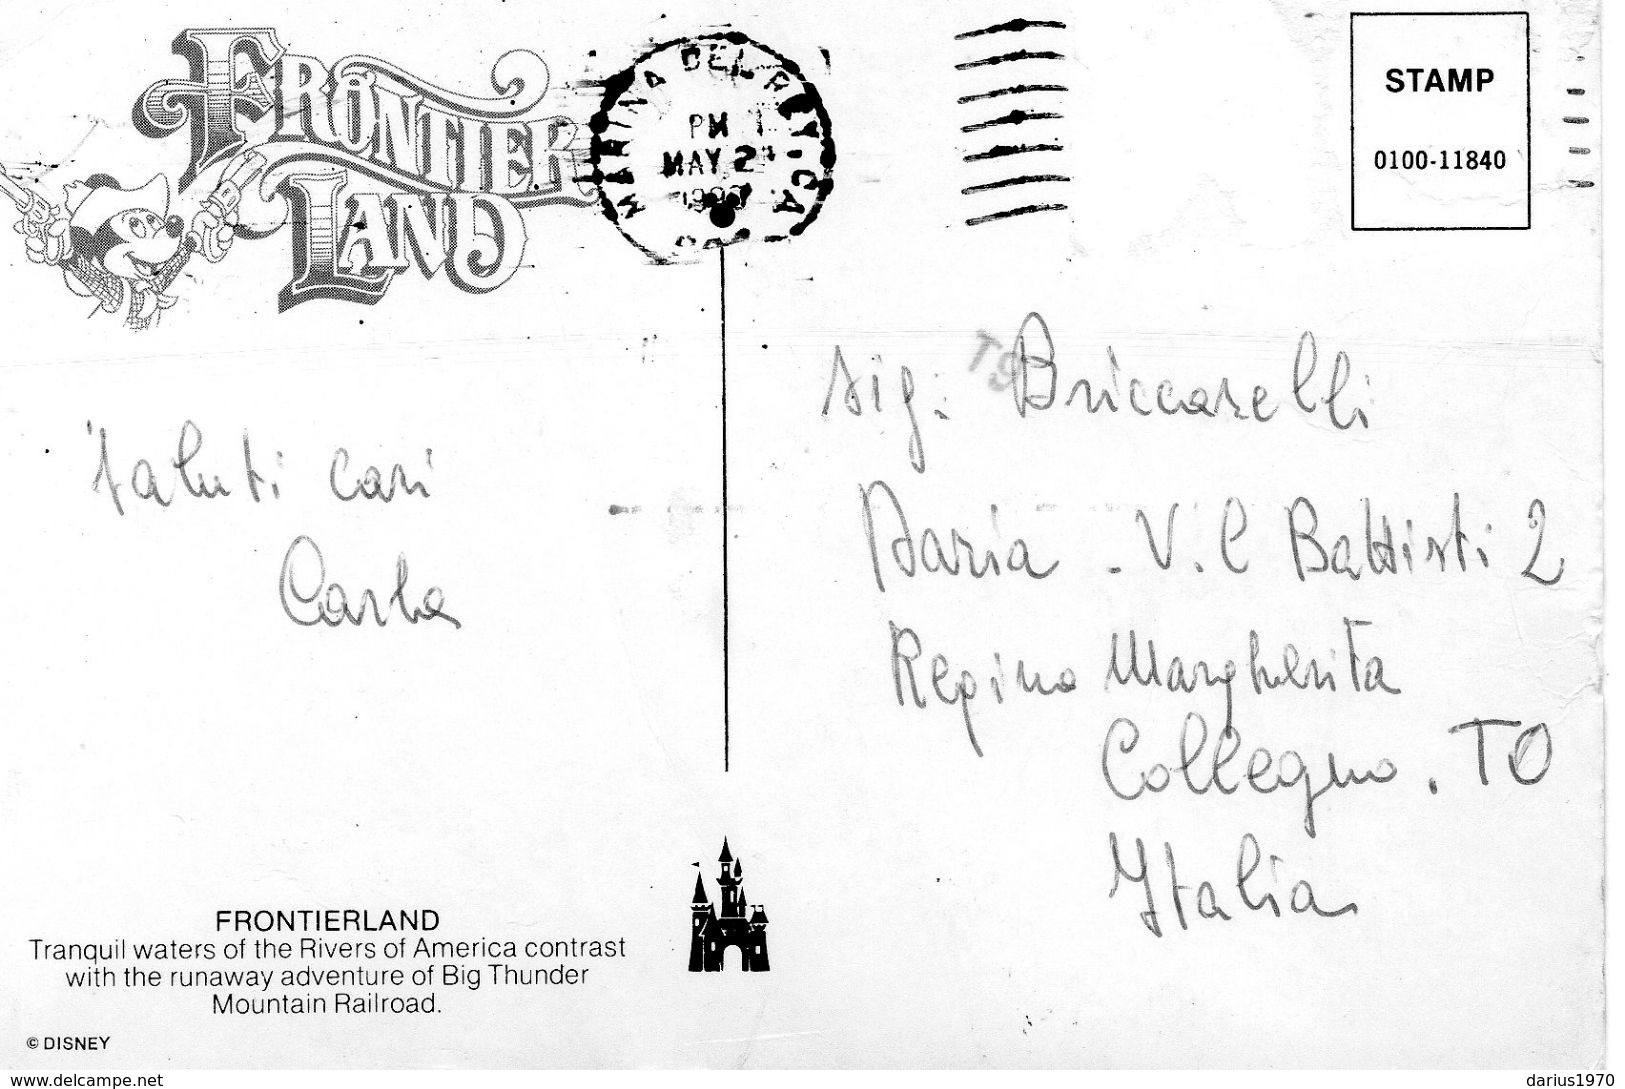 FRONTIER
LAND
MARINA DEL REY, CA
PM
MAY 2
STAMP
0100-11840
Sig: Briccarelli
Daria - V. C Battisti 2
Regina Margherita
Collegno . TO
Italia
Saluti cari
Carla
FRONTIERLAND
Tranquil waters of the Rivers of America contrast
with the runaway adventure of Big Thunder
Mountain Railroad.
© DISNEY
www.delcampe.net
darius1970